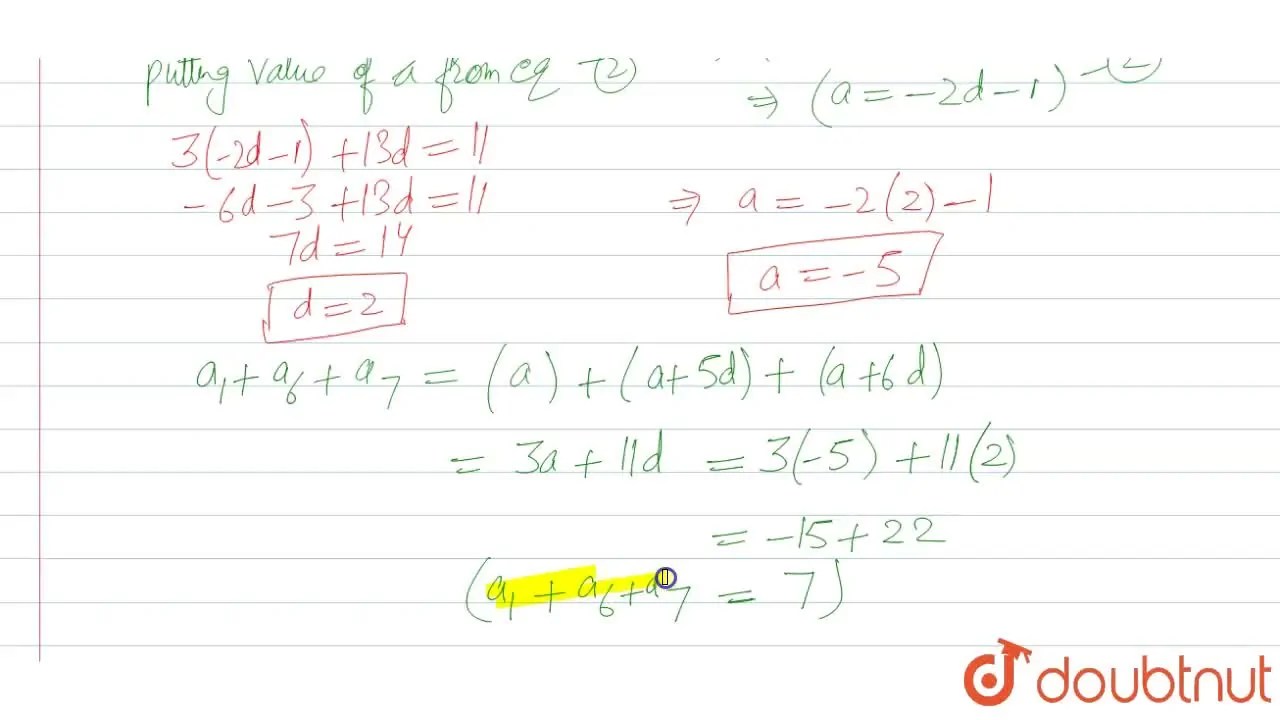 putting value of a from eq -(2)
⇒ (a = -2d - 1) -(2)
3(-2d-1) + 13d = 11
-6d - 3 + 13d = 11
⇒ a = -2(2) - 1
7d = 14
a = -5
d = 2
a₁ + a₆ + a₇ = (a) + (a + 5d) + (a + 6d)
= 3a + 11d = 3(-5) + 11(2)
= -15 + 22
(a₁ + a₆ + a₇ = 7)
doubtnut